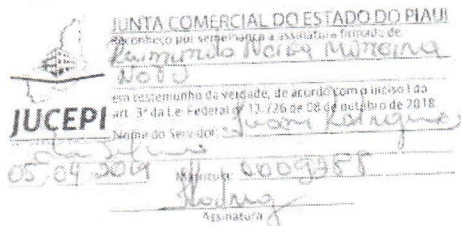 JUNTA COMERCIAL DO ESTADO DO PIAUI
Reconheço por semelhança a assinatura firmada de
Raimundo Moreira
em testemunho da verdade, de acordo com o inciso I da
art. 3º da Lei Federal nº 13.726 de 08 de outubro de 2018
JUCEPI
Nome do Servidor:
05 04 2019 Matrícula:
Assinatura